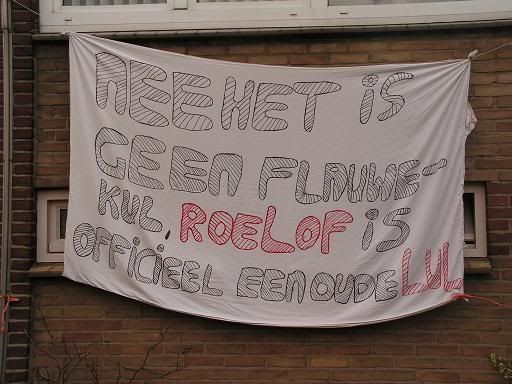 NEE HET iS
GEEN FLAUWE-
KUL, ROELOF iS
OFFiCiEEL EEN OUDE LUL